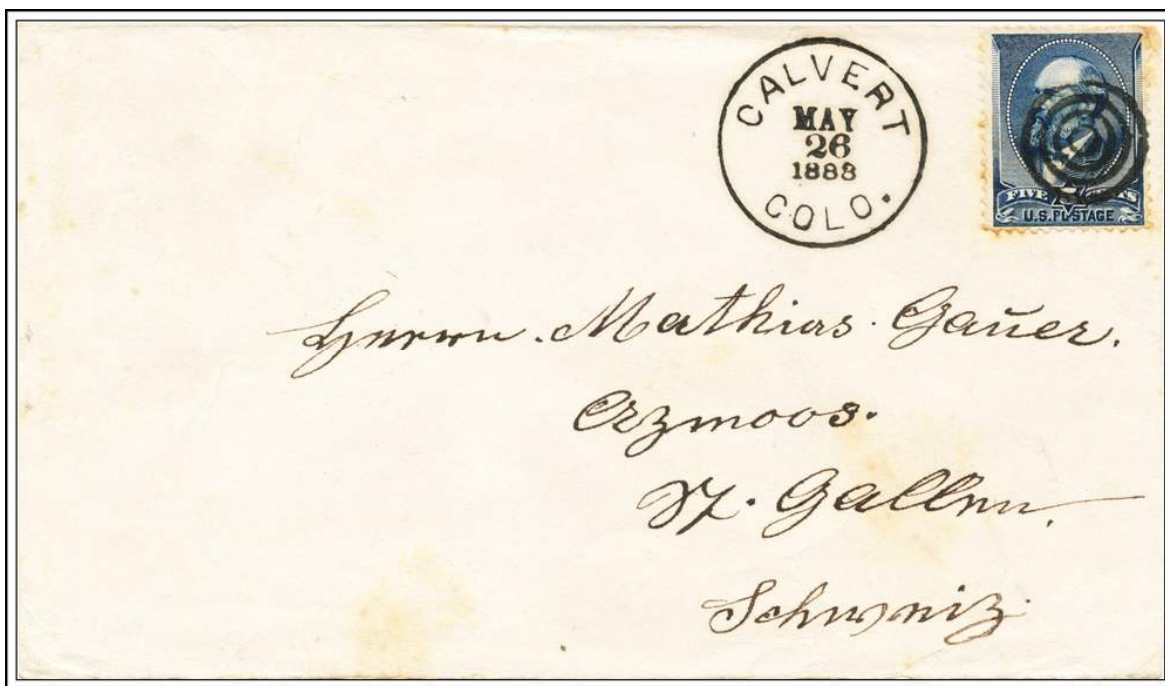 CALVERT
MAY
26
1888
COLO.
FIVE CENTS
U.S. POSTAGE
Herrn. Mathias Gauer.
Azmoos.
St. Gallen.
Schweiz.